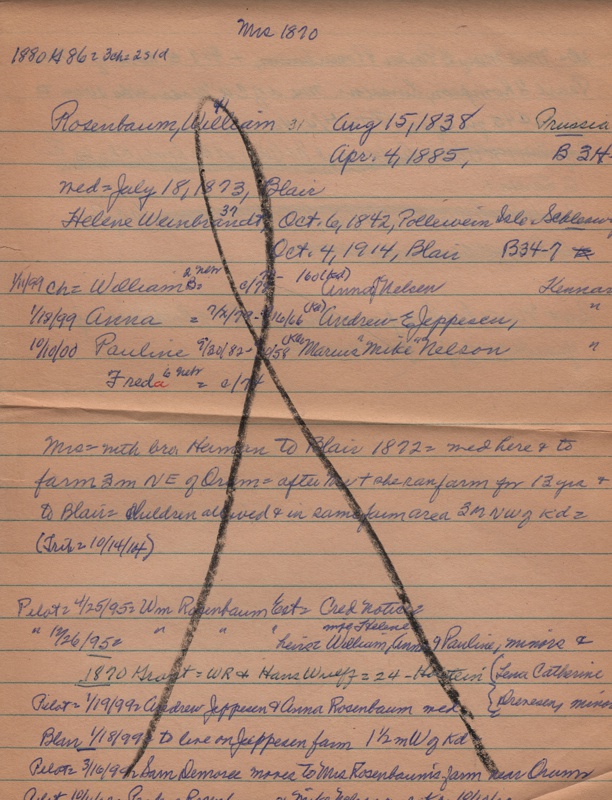 Mrs 1870
1880 H 86 = 3ch = 2 sld
Rosenbaum, William 31 Aug 15, 1838 Prussia
Apr. 4, 1885, B 34-
med = July 18, 1873, Blair
Helene Weinbrandt, 37 Oct. 6, 1842, Pollewein Isle Schleswi
Oct. 4, 1914, Blair B34-7
1/11/99 ch = William Anna Nelsen Kennar
1/18/99 Anna = 7/2/79 - Andrew E Jeppesen, "
10/10/00 Pauline 9/30/82 - Marius "Mike" Nelson "
Freda =
Mrs = with bro Herman to Blair 1872 = med here & to
farm 3m NE of Orum = after she ran farm for 13 yrs &
to Blair = children allowed & in same farm area 3m NW of Kd =
(Trib = 10/14/14)
Pilot = 4/25/95 = Wm Rosenbaum Est = Cred Notice
" 12/26/95 = " " " heirs = William, Anna & Pauline, minors &
mrs Helene
1870 = WR & Hans = 24 - Holstein (Lena Catherine
Pilot = 1/19/99 = Andrew Jeppesen & Anna Rosenbaum med minor
Blair 1/18/99 to live on Jeppesen farm 1 1/2 m W of Kd
Pilot = 3/16/99 = Sam Demoree moves to Mrs Rosenbaum's farm near Orum